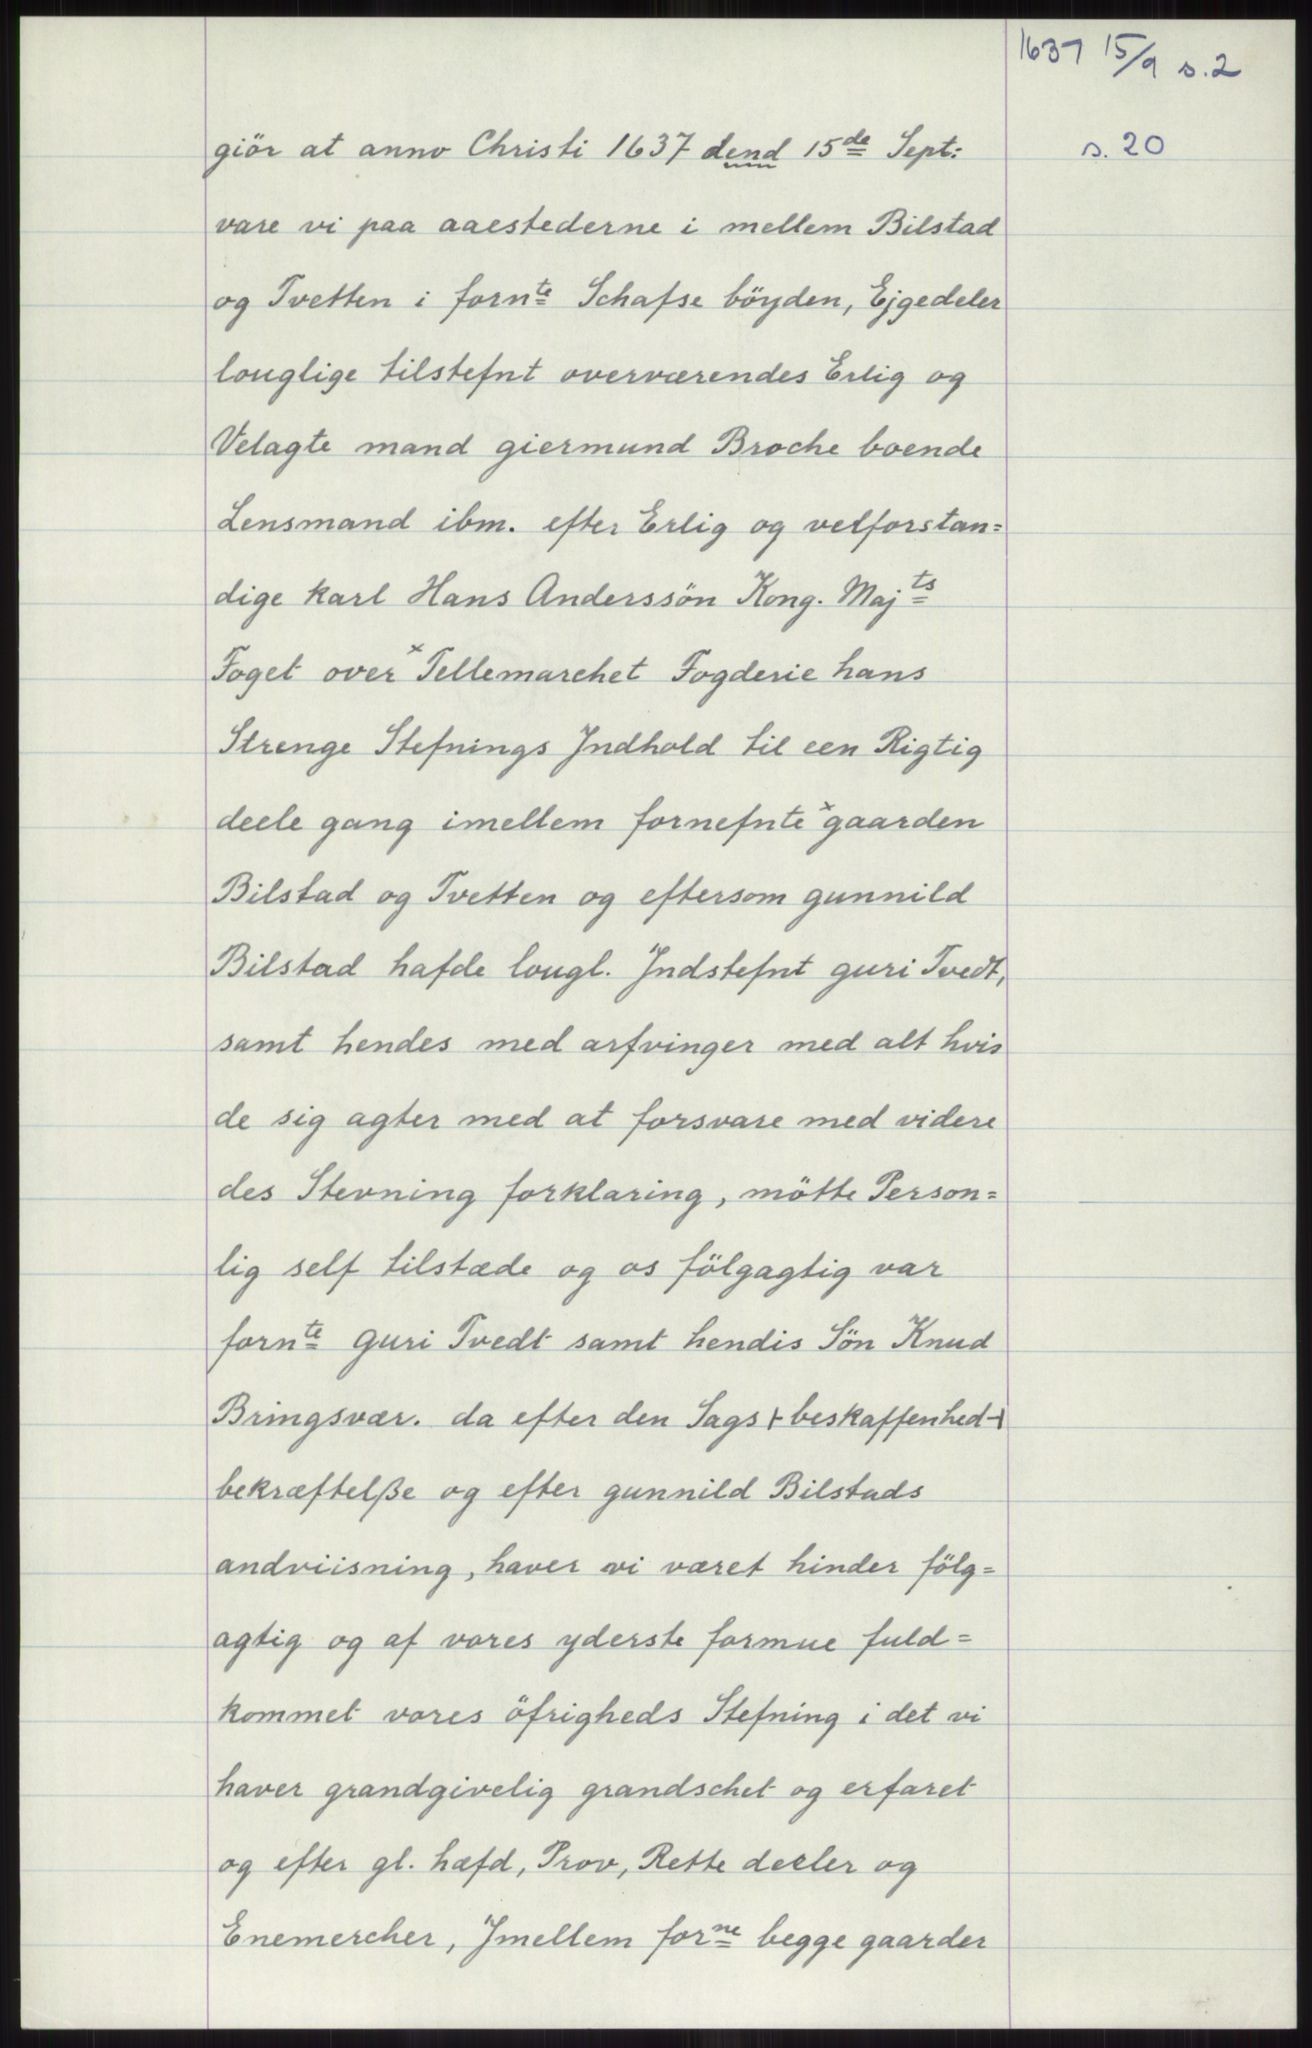 1637 15/9 s.2
s. 20
giör at anno Christi 1637 dend 15de Sept:
vare vi paa aaestederne i mellem Bilstad
og Tvetten i fornte Schafse böyden, Ejgedeler
louglige tilstefnt overværendes Erlig og
Velagte mand giermund Broche boende
Lensmand ibm. efter Erlig og velforstan=
dige karl Hans Anderssön Kong. Majts
Foget over x Tellemarchet Fogderie hans
Strenge Stefnings Jndhold til een Rigtig
deele gang imellem fornefnte x gaarden
Bilstad og Tvetten og eftersom gunnild
Bilstad hafde lougl. Jndstefnt guri Tvedt,
samt hendes med arfvinger med alt hvis
de sig agter med at forsvare med videre
des Stevning forklaring, mötte Person=
lig self tilstæde og os fölgagtig var
fornte guri Tvedt samt hendis Sön Knud
Bringsvær. da efter den Sags beskaffenhed
bekræftelße og efter gunnild Bilstads
andviisning, haver vi været hinder fölg=
agtig og af vores yderste formue fuld=
kommet vores öfrigheds Stefning i det vi
haver grandgivelig grandschet og erfaret
og efter gl. hæfd, Prov, Rette deeler og
Enemercher, Jmellem forne begge gaarder